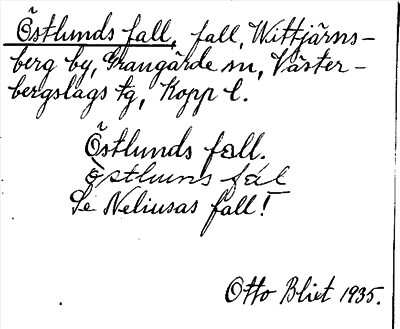 Östlunds fall, fall, Wittjärns-
berg by, Grangärde sn, Väster-
bergslags tg, Kopp l.
Östlunds fall.
Östluns fál
Se Neliusas fall!
Otto Blixt 1935.